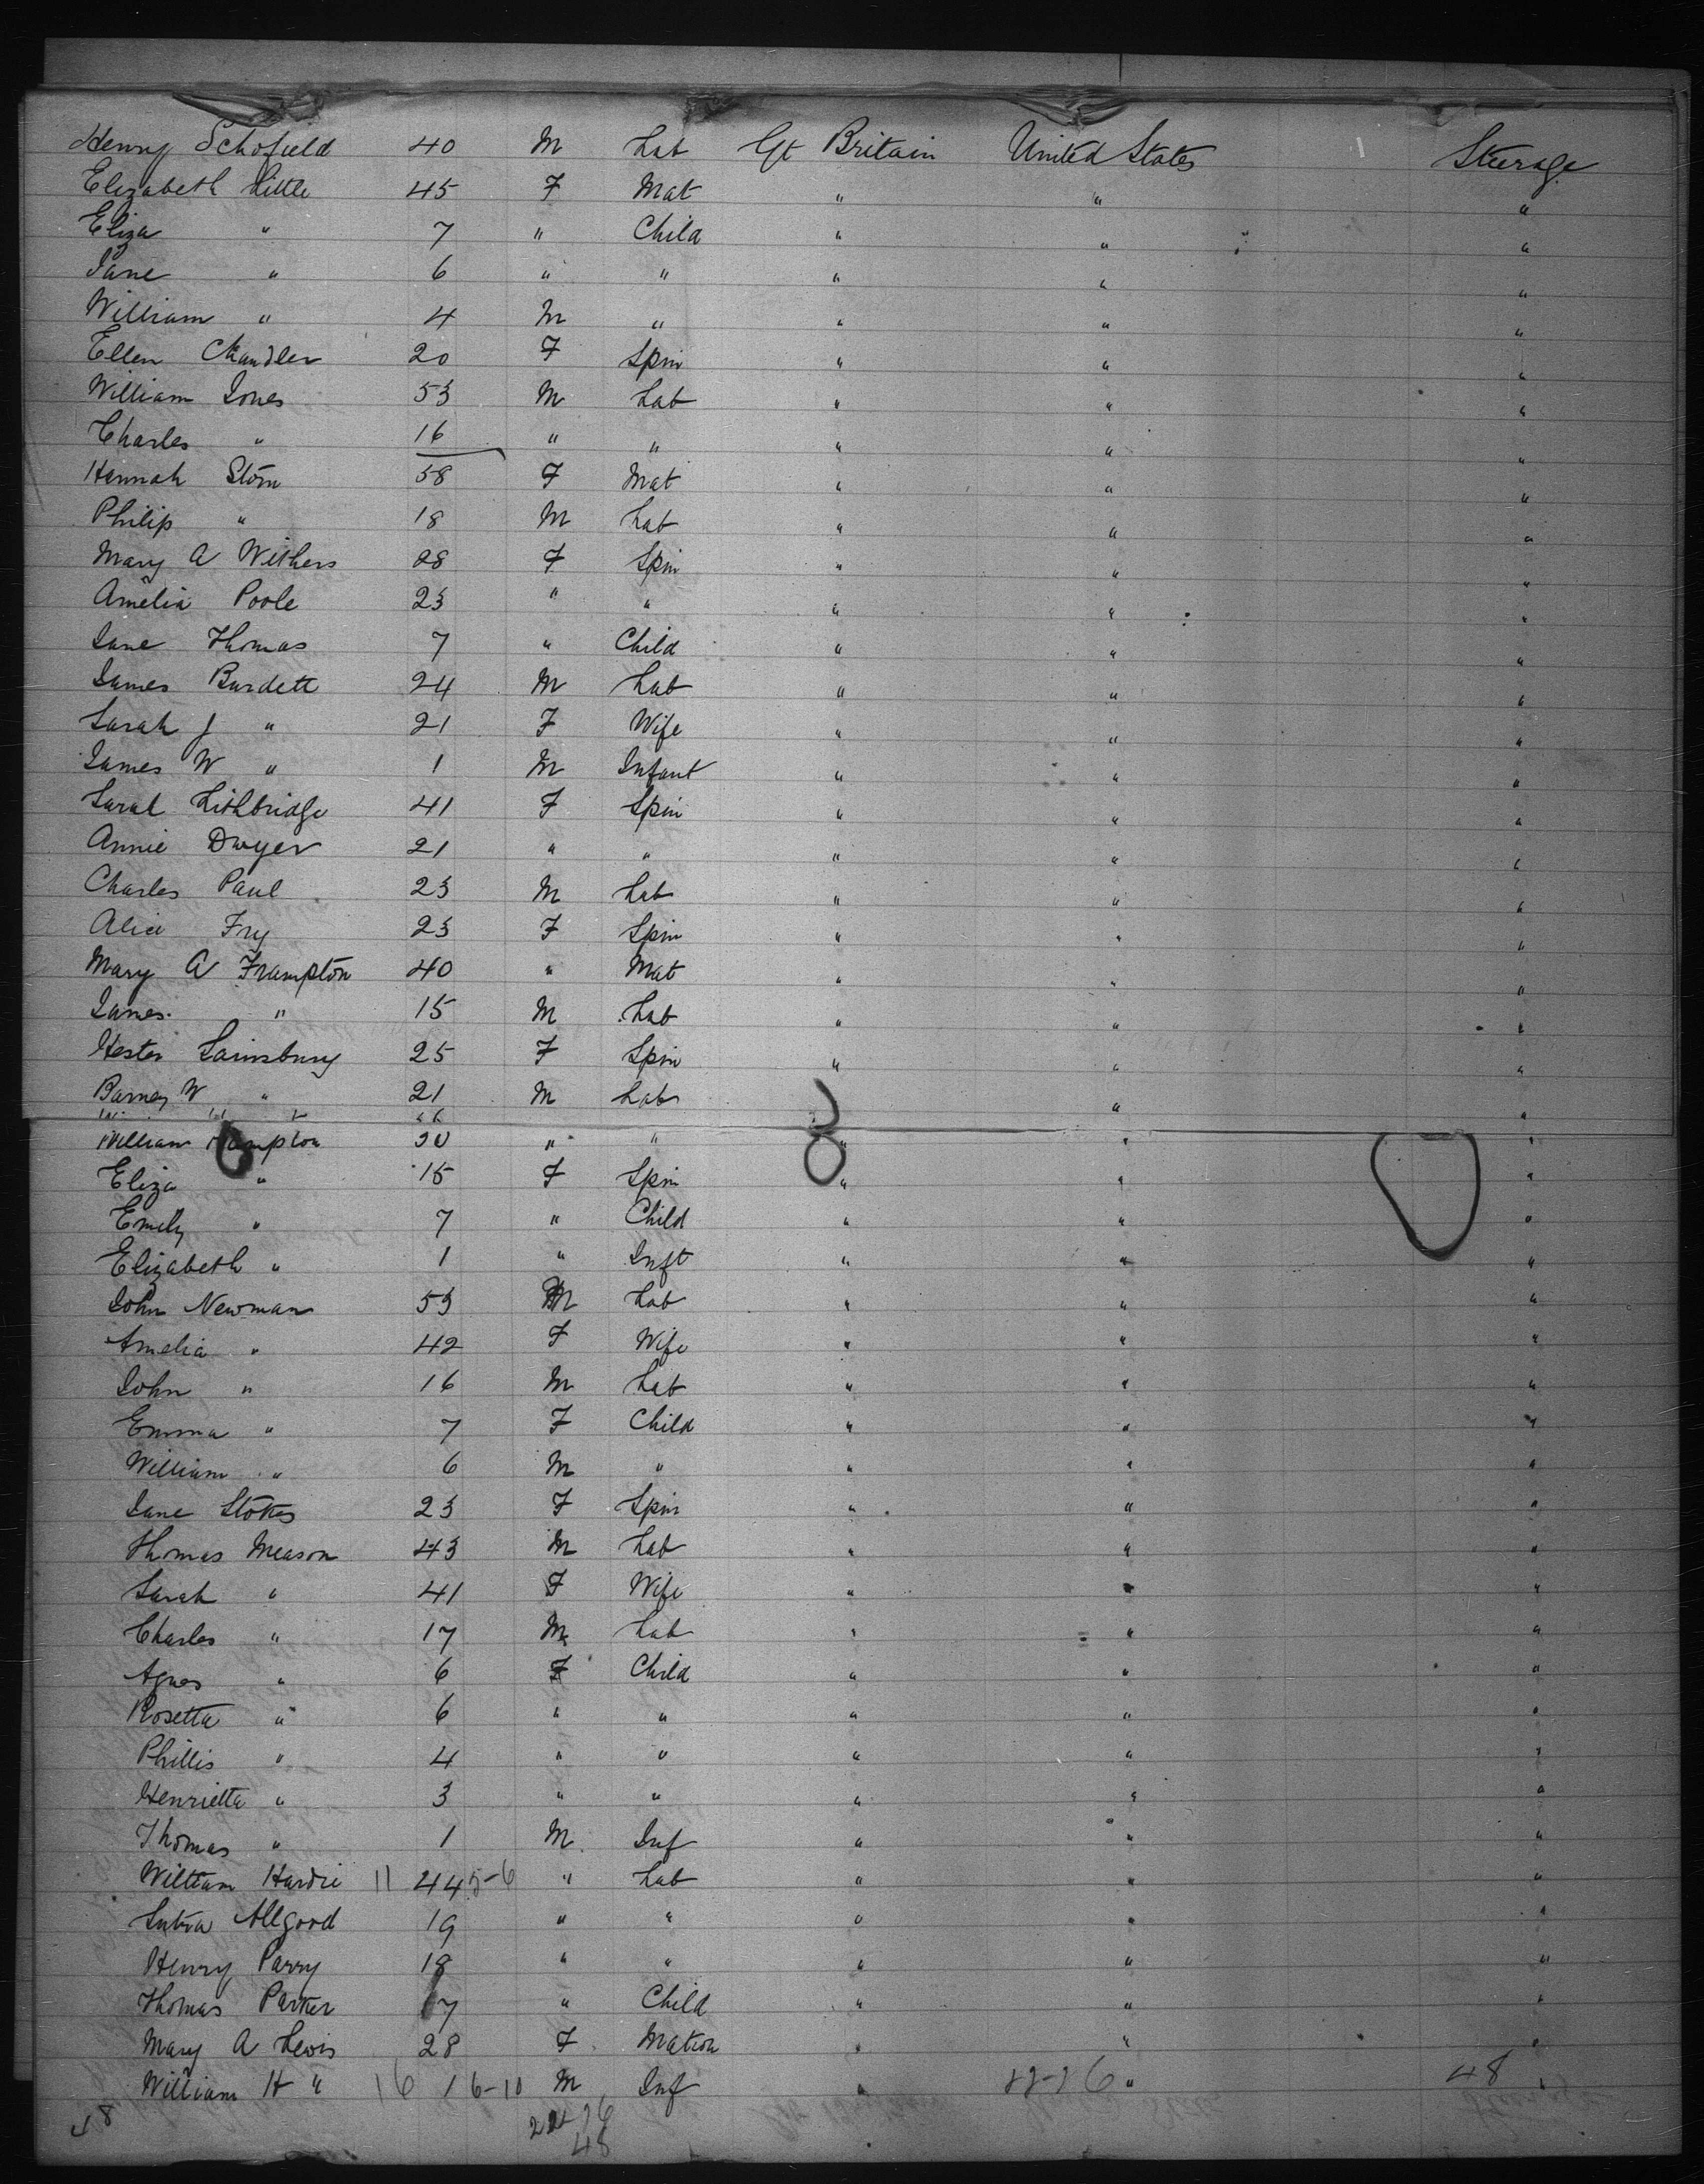 Henry Schofield 40 M Lab Gt Britain United States Steerage
Elizabeth Little 45 F Mat " " "
Eliza " 7 " Child " " "
Jane " 6 " " " " "
William " 4 M " " " "
Ellen Chandler 20 F Spin " " "
William Jones 53 M Lab " " "
Charles " 16 " " " " "
Hannah Storn 58 F Mat " " "
Philip " 18 M Lab " " "
Mary A Withers 28 F Spin " " "
Amelia Poole 23 " " " " "
Jane Thomas 7 " Child " " "
James Burdett 24 M Lab " " "
Sarah J " 21 F Wife " " "
James W " 1 M Infant " " "
Sarah Lithbridge 41 F Spin " " "
Annie Dwyer 21 " " " " "
Charles Paul 23 M Lab " " "
Alice Fry 23 F Spin " " "
Mary A Frampton 40 " Mat " " "
James " 15 M Lab " " "
Hester Sainsbury 25 F Spin " " "
Barney W " 21 M Lab " "
William " " " " "
Eliza " 15 F Spin " " "
Emily " 7 " Child " " "
Elizabeth " 1 " Inft " " "
John Newman 53 M Lab " " "
Amelia " 42 F Wife " " "
John " 16 M Lab " " "
Emma " 7 F Child " " "
William " 6 M " " " "
Jane Stokes 23 F Spin " " "
Thomas Meason 43 M Lab " " "
Sarah " 41 F Wife " " "
Charles " 17 M Lab " " "
Agnes " 6 F Child " " "
Rosetta " 6 " " " " "
Phillis " 4 " " " " "
Henrietta " 3 " " " " "
Thomas " 1 M Inf " " "
William Hardie 11 44 5-6 " Lab " " "
Allgood 19 " " " " "
Henry Parry 18 " " " " "
Thomas Parker 7 " Child " " "
Mary A Lewis 28 F Matron " " "
William H " 16 1 6-10 M Inf " " 48 "
48 22 26
48